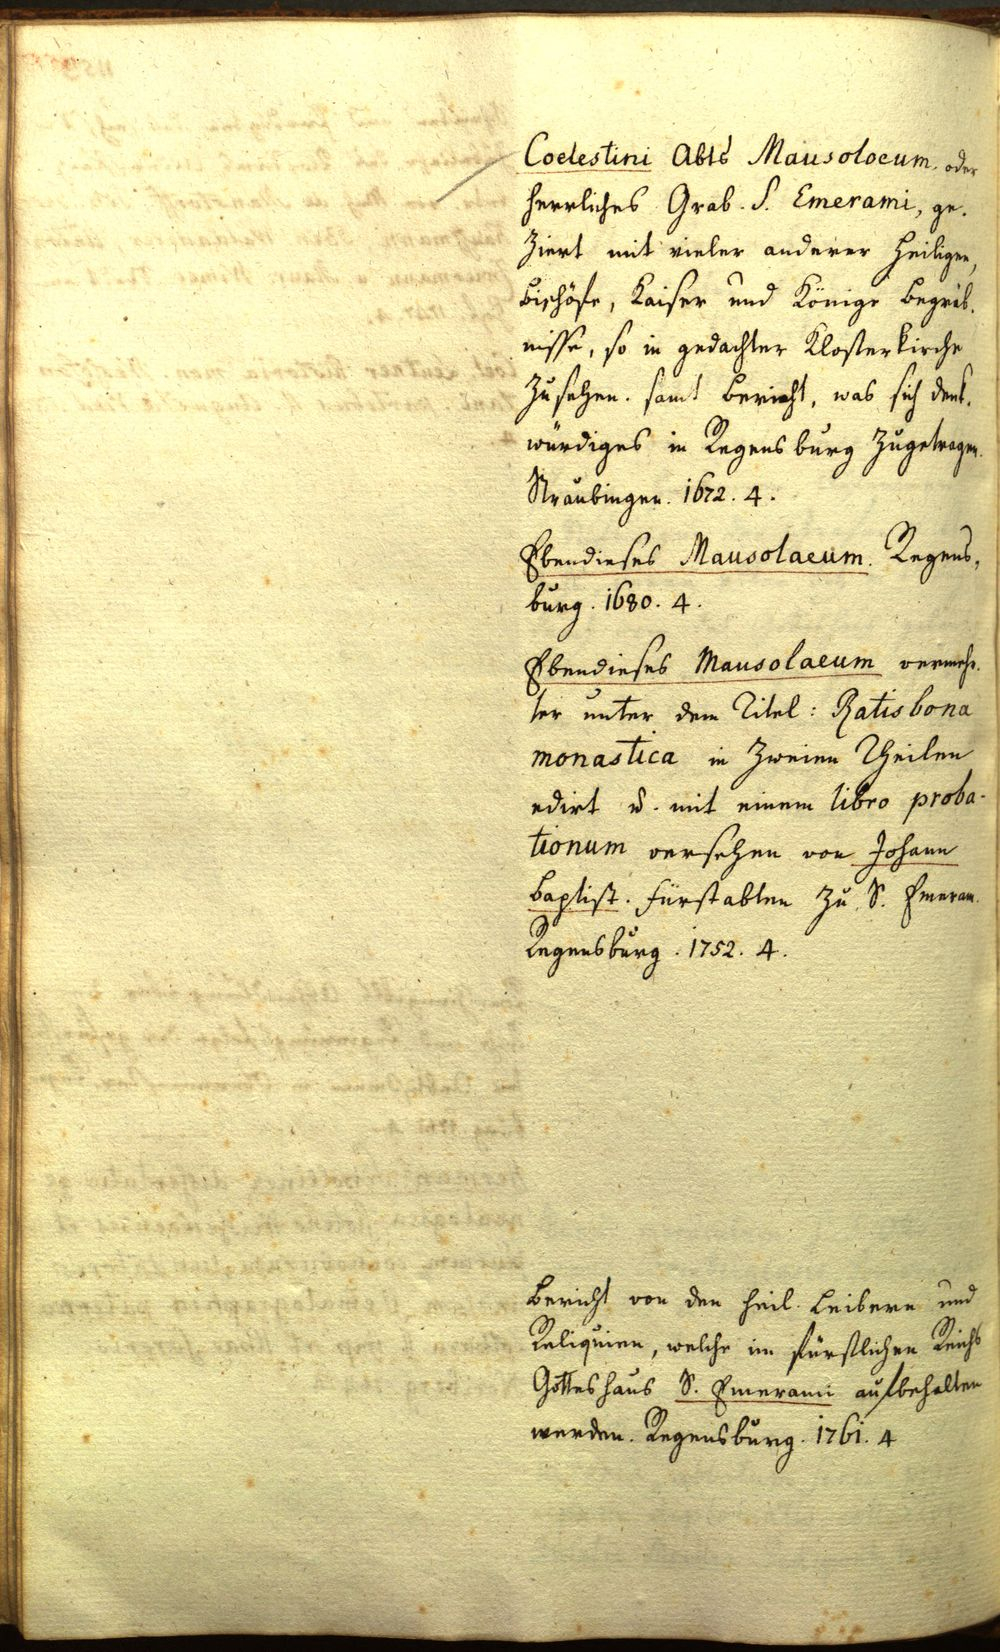 Coelestini Abts Mausoloeum. oder
herrliches Grab. S. Emerami, ge-
ziert mit vieler anderer Heiligen,
Bischöfe, Kaiser und Könige Begräb-
nisse, so in gedachter Klosterkirche
zusehen. samt Bericht, was sich denk-
würdiges in Regensburg zugetragen.
Straubingen. 1672. 4.
Ebendieses Mausolaeum. Regens-
burg. 1680. 4.
Ebendieses Mausolaeum vermehr-
ter unter dem Titel: Ratisbona
monastica in zweien Theilen
edirt u. mit einem libro proba-
tionum versehen von Johann
Baptist. Fürstabten zu S. Emeram.
Regensburg. 1752. 4.
Bericht von den heil. Leibern und
Reliquien, welche im fürstlichen Reichs
Gotteshaus S. Emerami aufbehalten
werden. Regensburg. 1761. 4